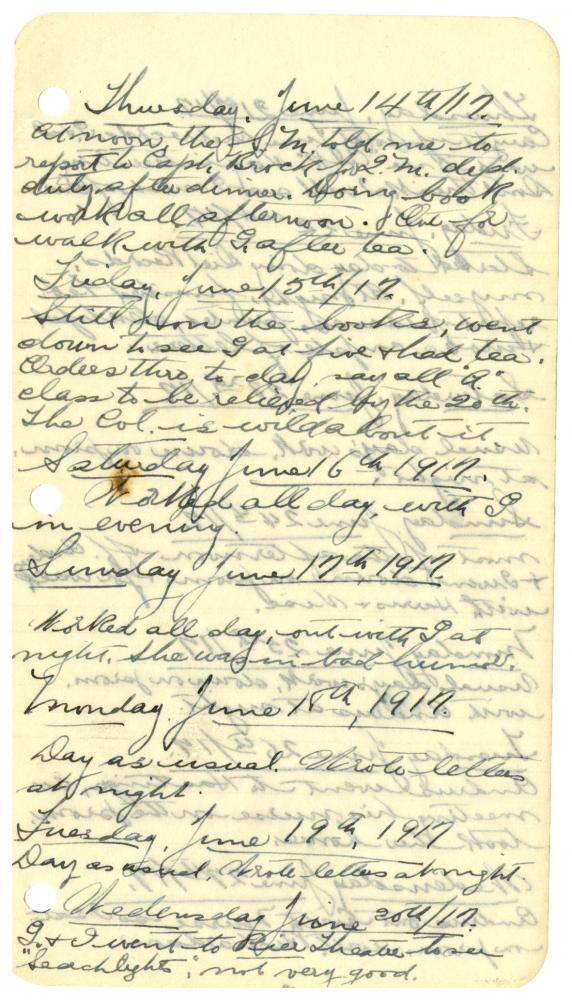 Thursday, June 14th/17.
At noon, the S.M. told me to
report to Capt. Brock for Q.M. dept.
duty, after dinner. Doing book
work all afternoon. Out for
walk with G. after tea.
Friday, June 15th/17.
Still on the books, went
down to see G at five & had tea.
Orders thro to day, say all "A"
class to be relieved by the 20th.
The Col. is wild about it
Saturday June 16th 1917.
Worked all day. with G
in evening.
Sunday June 17th, 1917.
Worked all day, out with G at
night. She was in bad humor.
Monday June 18th, 1917.
Day as usual. Wrote letters
at night.
Tuesday, June 19th, 1917
Day as usual. Wrote letters at night.
Wedensday June 20th/17.
G. & I went to Pier Theatre to see
"Seachlights", not very good.